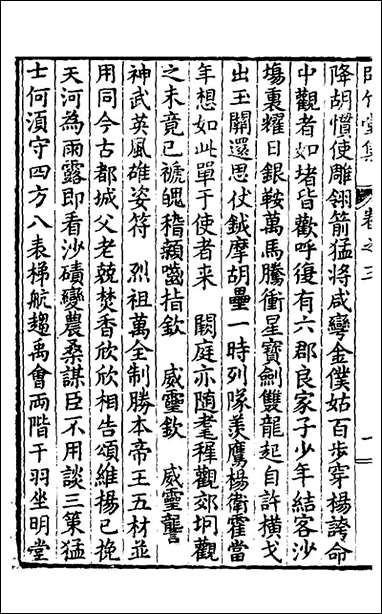 竹堂集 卷之三 一
降胡慣使雕翎箭猛將咸彎金僕姑百步穿楊誇命
中觀者如堵皆歡呼復有六郡良家子少年結客沙
塲裏耀日銀鞍萬馬騰衝星寶劍雙龍起自許橫戈
出玉關還思仗鉞摩胡壘一時列隊羨鷹楊衛霍當
年想如此單于使者來 闕庭亦隨耄穉觀郊坰觀
之未竟已褫魄稽顙嚙指欽 威靈欽 威靈讋
神武英風雄姿符 烈祖萬全制勝本帝王五材並
用同今古都城父老競焚香欣欣相告頌維楊已挽
天河為雨露即看沙磧變農桑謀臣不用談三策猛
士何須守四方八表梯航趨禹會两階干羽坐明堂